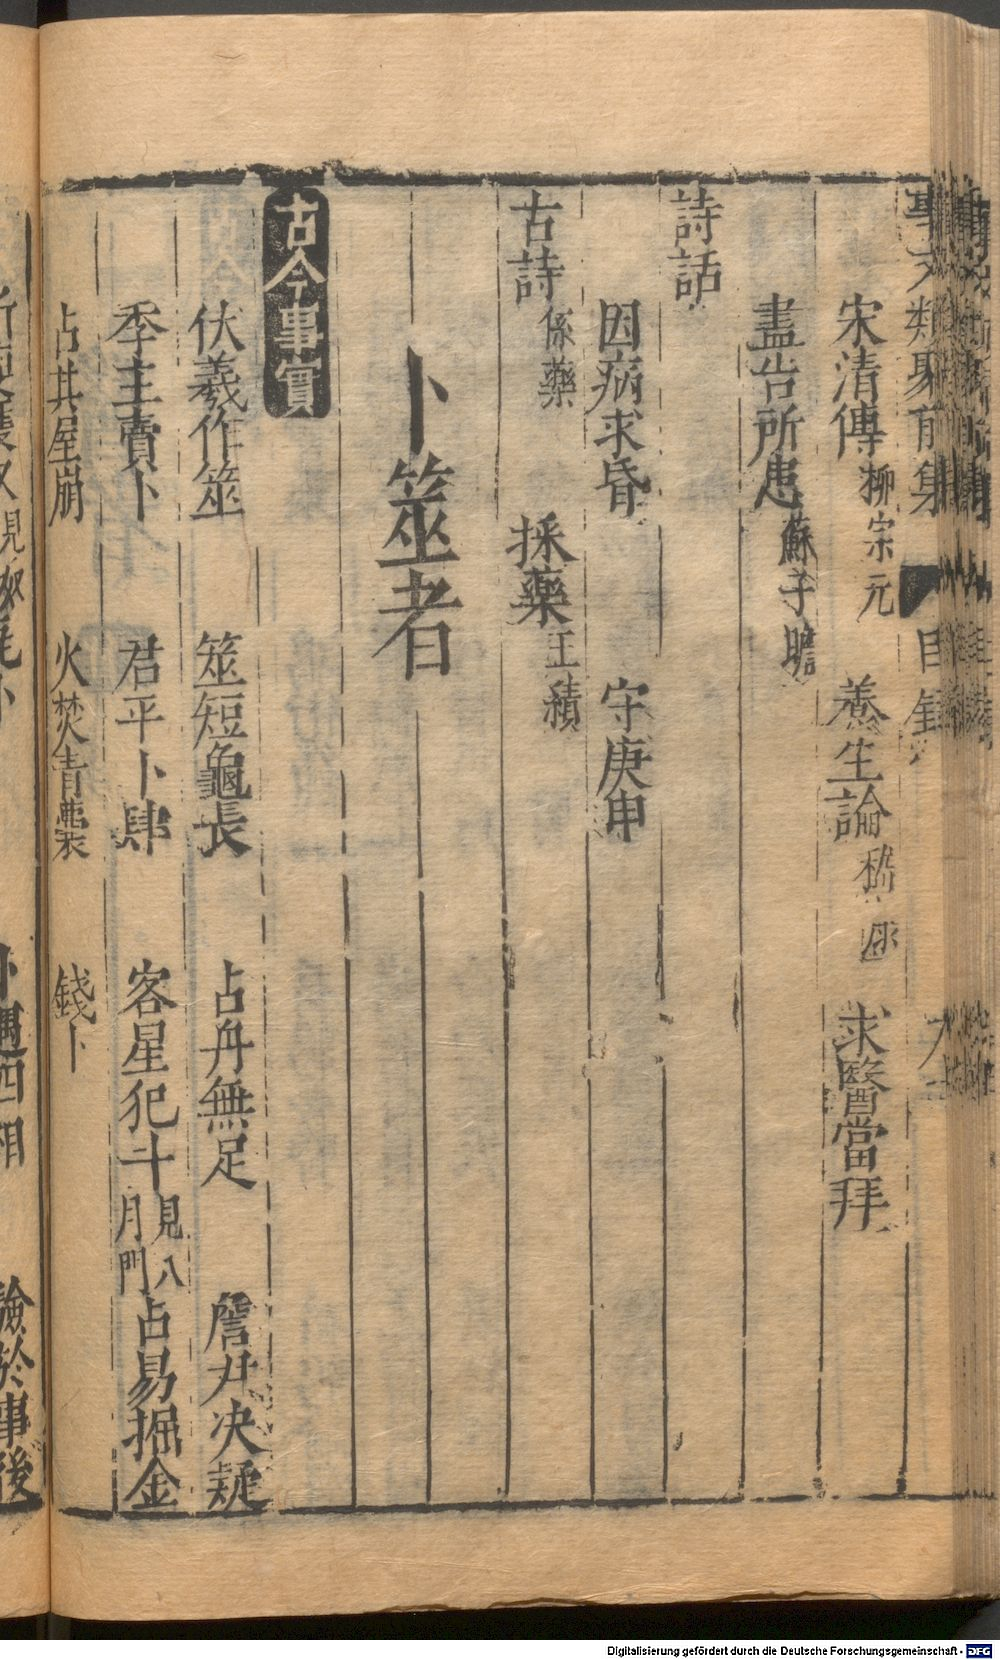 事文類聚前集 目錄
宋清傳 柳宗元 養生論 嵇叔 求醫當拜
盡告所患 蘇子瞻
詩話
因病求昏 守庚申
古詩 係藥 採藥 王績
卜筮者
古今事實
伏羲作筮 筮短龜長 占舟無足 詹尹决疑
季主賣卜 君平卜肆 客星犯斗 見八月門 占易掘金
占其屋崩 火焚青囊 錢卜
卜遇四相 驗於事後
Digitalisierung gefördert durch die Deutsche Forschungsgemeinschaft - DFG